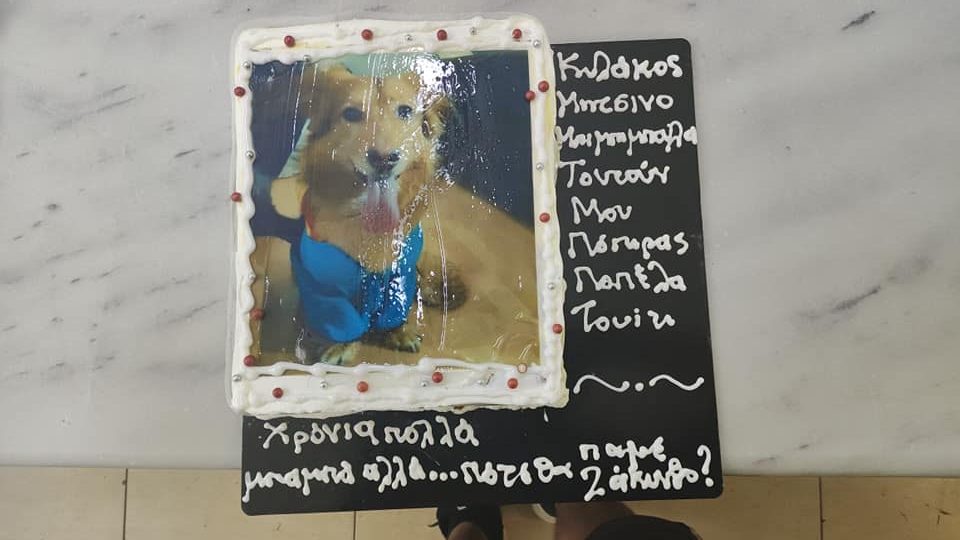 Κυλάκος
Μπεσινο
Μπαμπαλα
Τουτούν
Μου
Πόπιρας
Ποπέλα
Τουίτι
Χρόνια πολλά
μπαμπά αλλά...πότε θα παμε Ζάκυνθο?